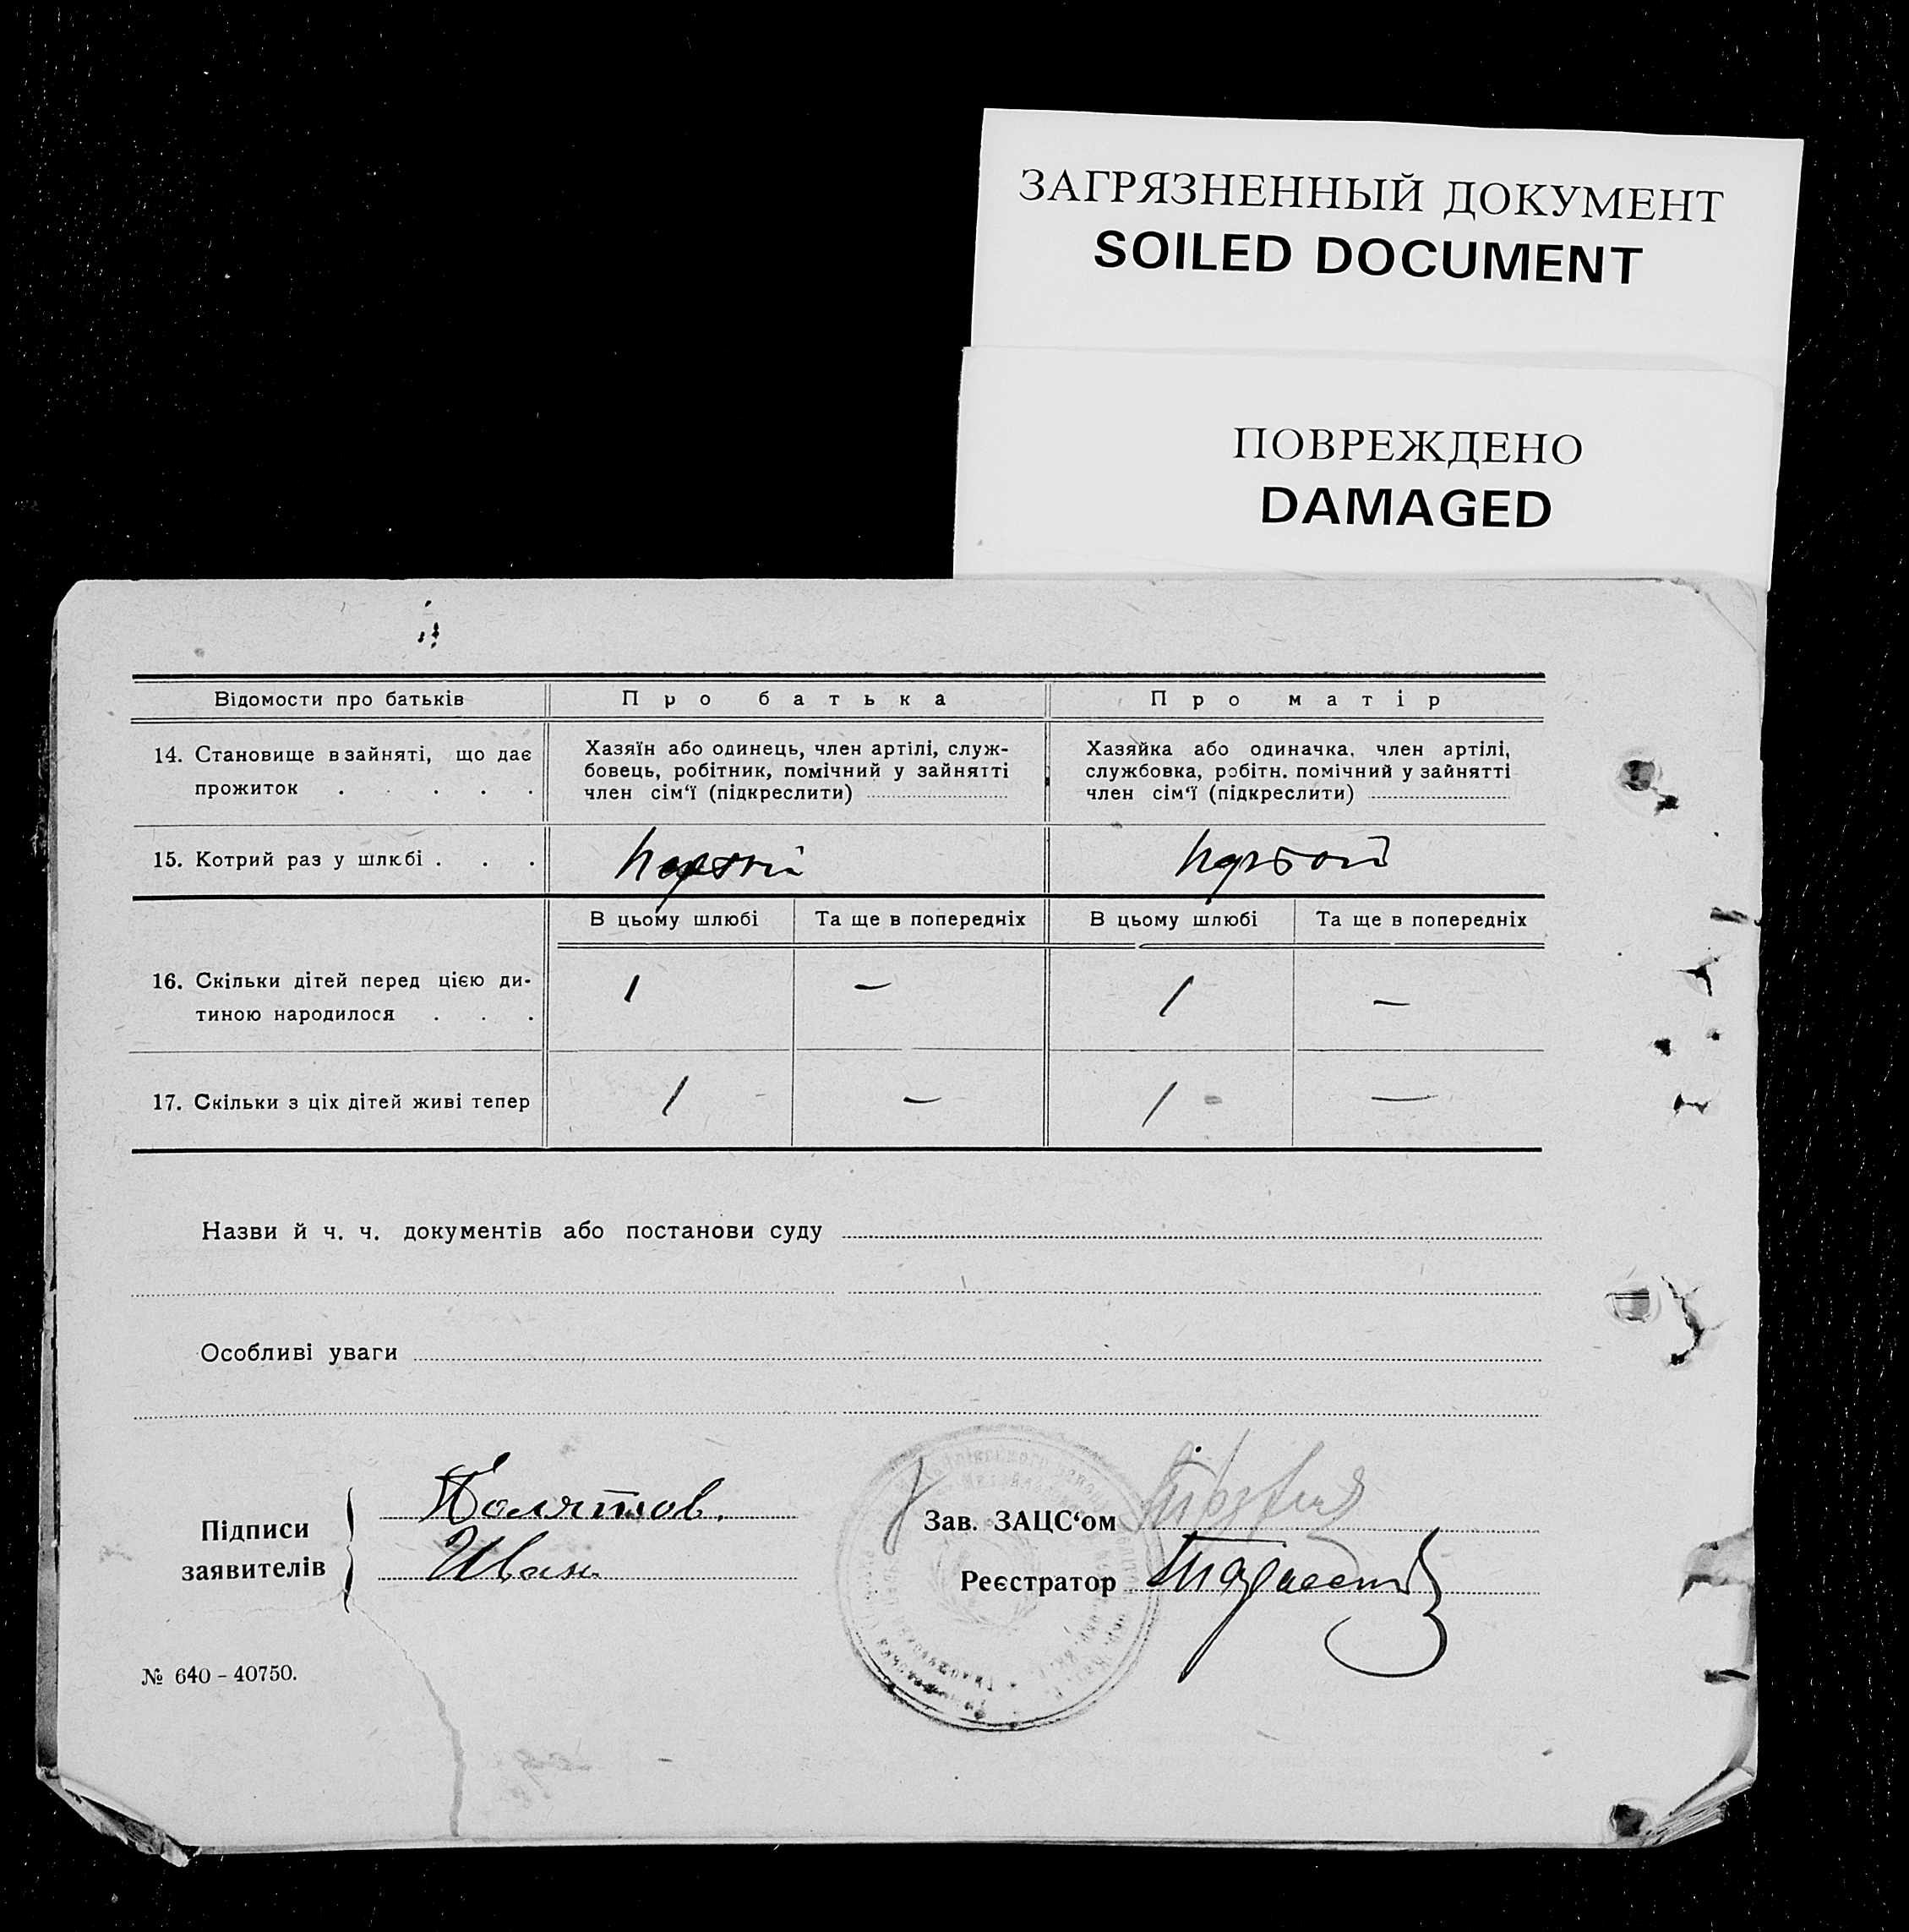 ЗАГРЯЗНЕННЫЙ ДОКУМЕНТ
SOILED DOCUMENT
ПОВРЕЖДЕНО
DAMAGED
Відомости про батьків
Про батька
Про матір
14. Становище в зайняті, що дає
прожиток . . . . .
Хазяїн або одинець, член артілі, служ-
бовець, робітник, помічний у зайнятті
член сім‘ї (підкреслити)
Хазяйка або одиначка, член артілі,
службовка, робітн. помічний у зайнятті
член сім‘ї (підкреслити)
15. Котрий раз у шлюбі . . .
В цьому шлюбі
Та ще в попередніх
В цьому шлюбі
Та ще в попередніх
16. Скільки дітей перед цією ди-
тиною народилося . . .
1
—
1
—
17. Скільки з ціх дітей живі тепер
1
—
1
—
Назви й ч. ч. документів або постанови суду
Особливі уваги
Підписи
заявителів
Иван
Зав. ЗАЦС‘ом
Реєстратор
№ 640 - 40750.